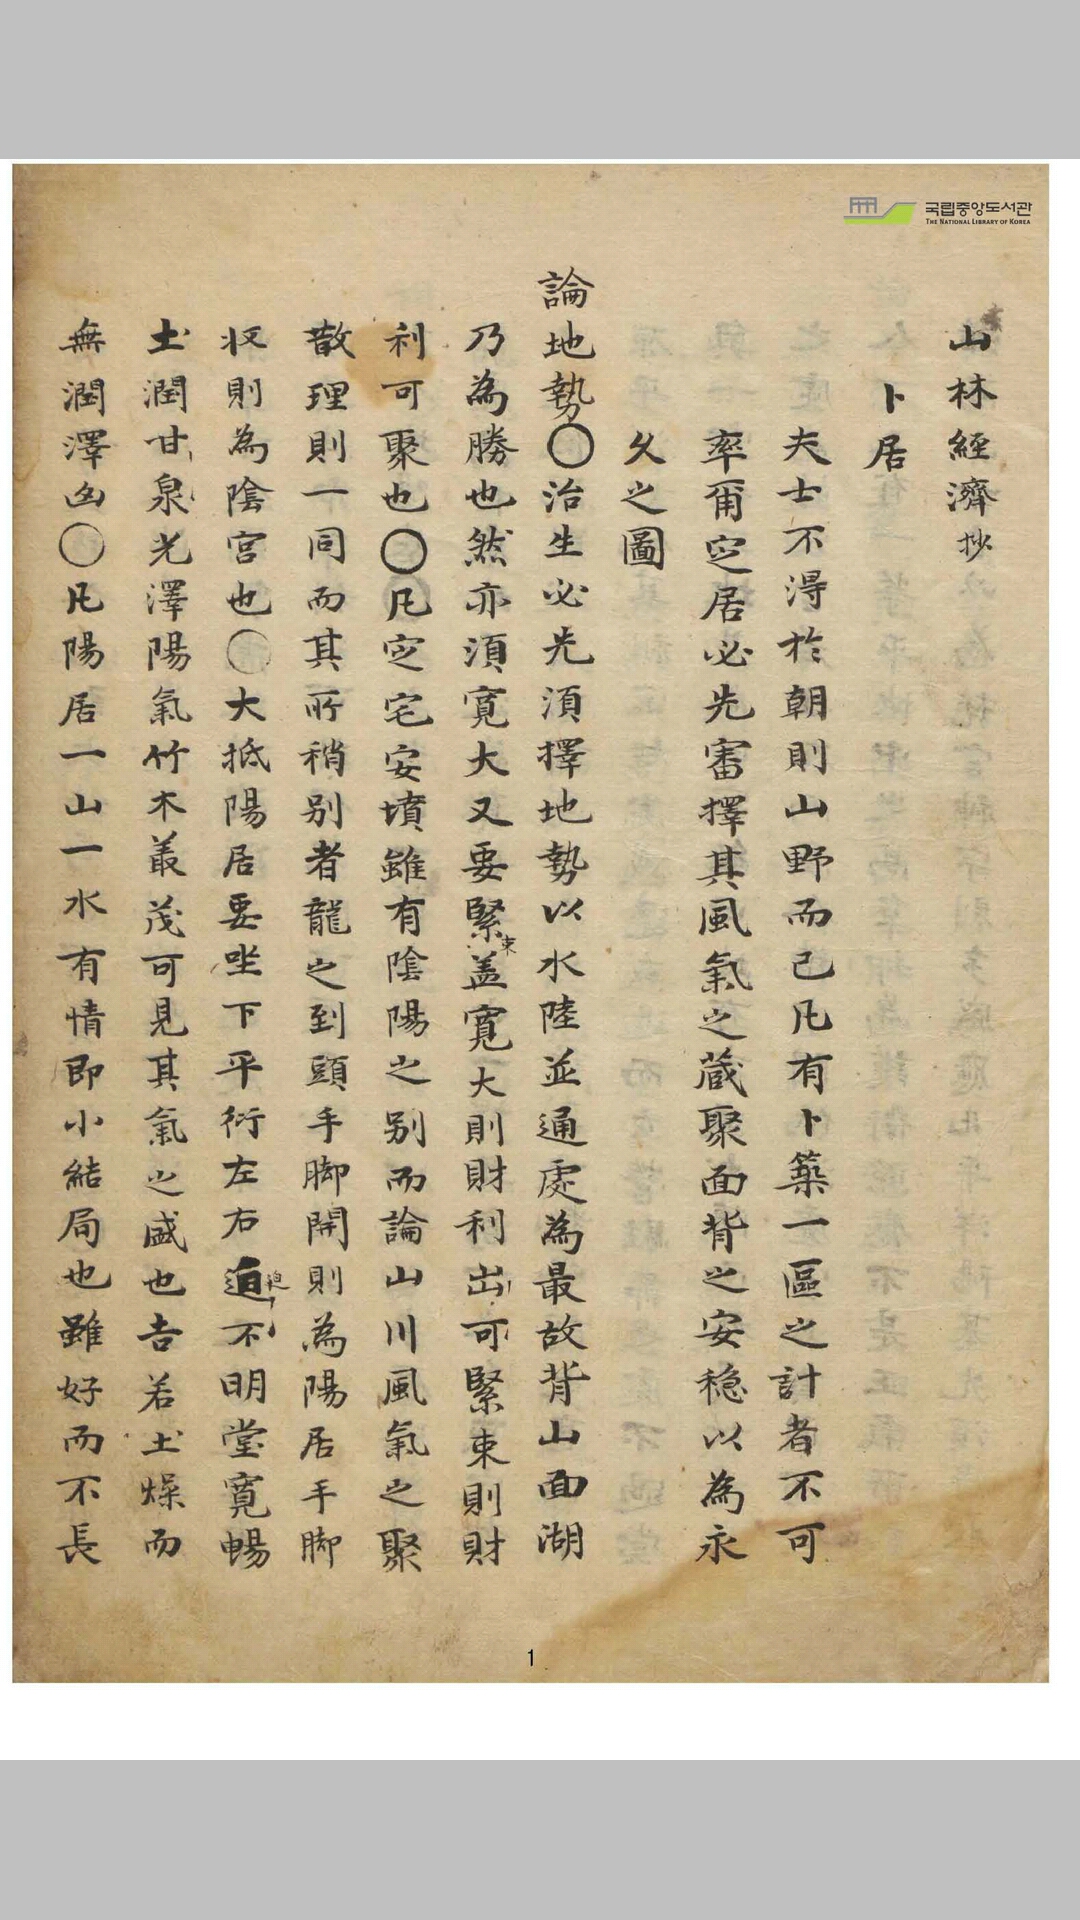 국립중앙도서관
THE NATIONAL LIBRARY OF KOREA
山林經濟抄
卜居
夫士不淂於朝則山野而已凡有卜築一區之計者不可
率爾定居必先審擇其風氣之蔵聚面背之安穏以為永
久之圖
論地勢〇治生必先須擇地勢以水陸並通處為最故背山面湖
乃為勝也然亦湏寛大又要緊束盖寛大則財利出可緊束則財
利可聚也〇凡定宅安墳雖有陰陽之别而論山川風氣之聚
散理則一同而其所稍别者龍之到頭手脚開則為陽居手脚
収則為陰宫也〇大抵陽居要坐下平衍左右迫迫不明堂寛暢
土潤甘泉光澤陽氣竹木叢茂可見其氣之盛也吉若土燥而
無潤澤凶〇凡陽居一山一水有情即小結局也雖好而不長
1